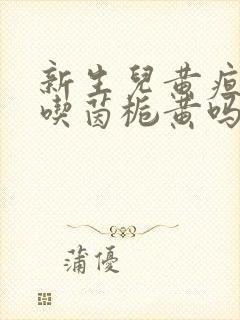 新生兒黄疸
喫茵栀黄吗
蒲優